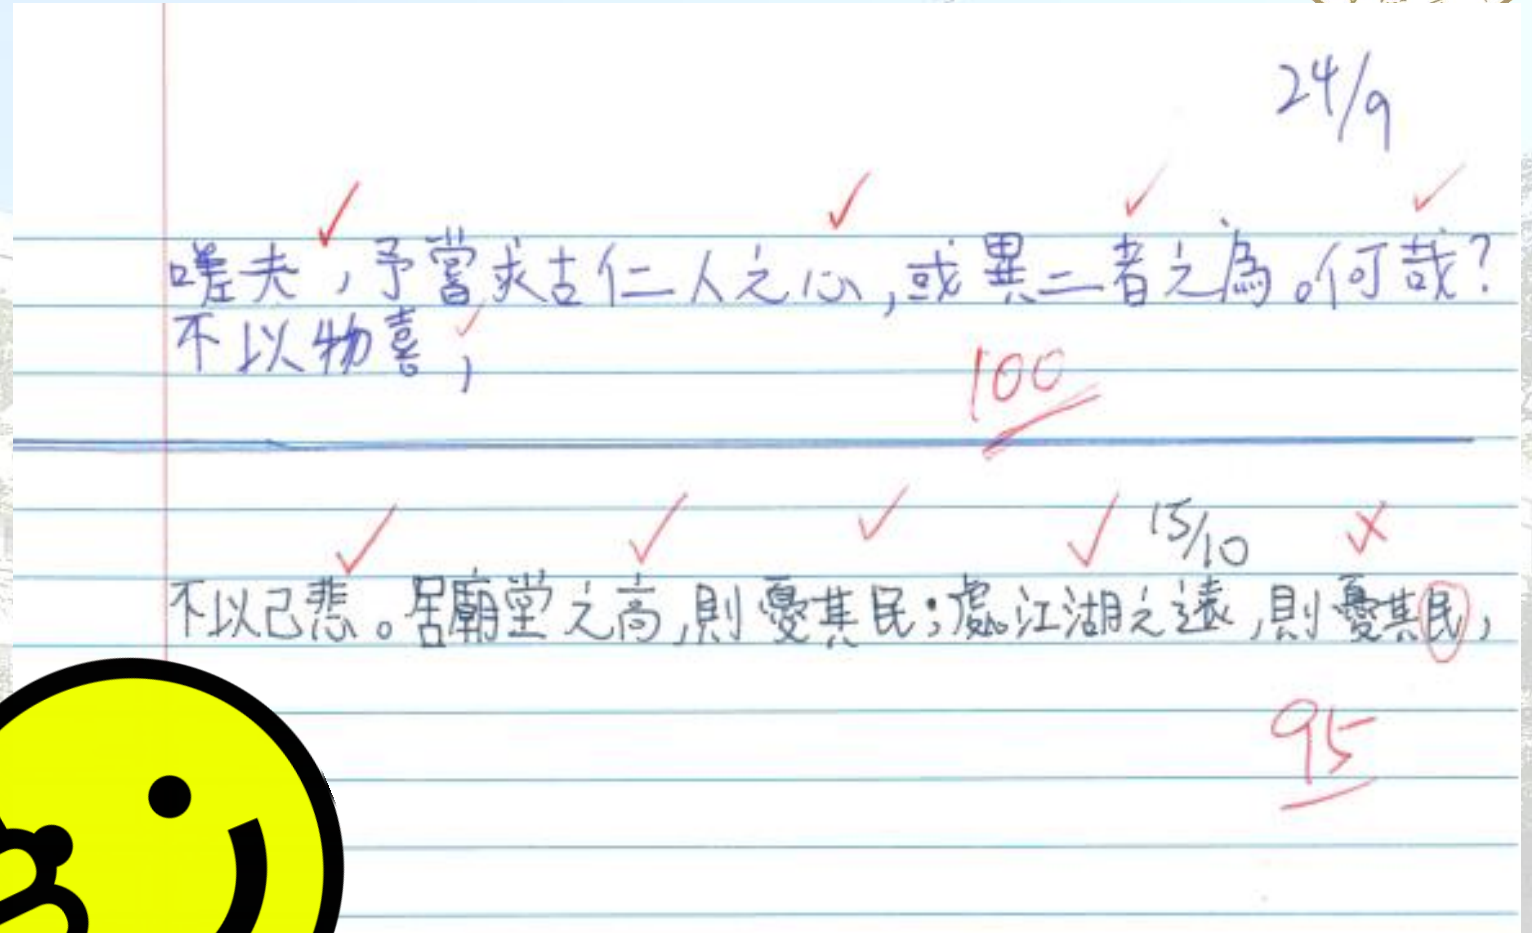 24/9
嗟夫,予嘗求古仁人之心,或異二者之為。何哉?
不以物喜,
100
15/10
不以己悲。居廟堂之高,則憂其民;處江湖之遠,則憂其民,
95